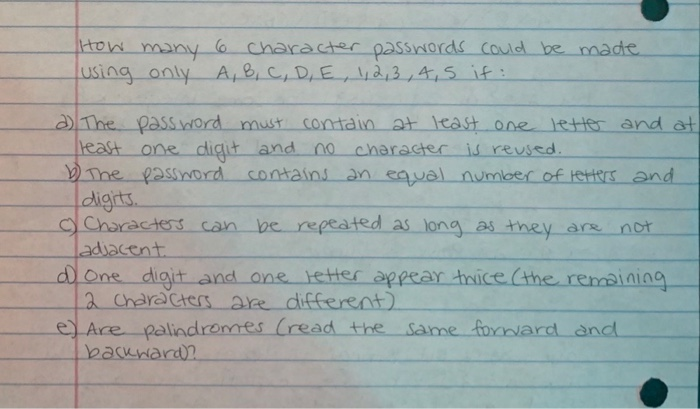 How many 6 character passwords could be made
using only A, B, C, D, E, 1, 2, 3, 4, 5 if:
a) The password must contain at least one letter and at
least one digit and no character is reused.
b) The password contains an equal number of letters and
digits.
c) Characters can be repeated as long as they are not
adjacent.
d) One digit and one letter appear twice (the remaining
2 characters are different)
e) Are palindromes (read the same forward and
backward)?